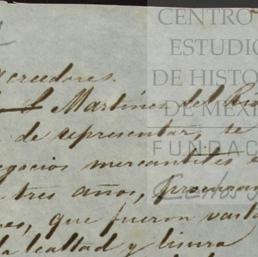 CENTRO
ESTUDIO
DE HISTO
DE MÉXI
FUNDAC
acreedores.
Martinez del Rio
de representar, se
negocios mercantiles
tres años, procuran
que fueron vast
la lealtad y lisura